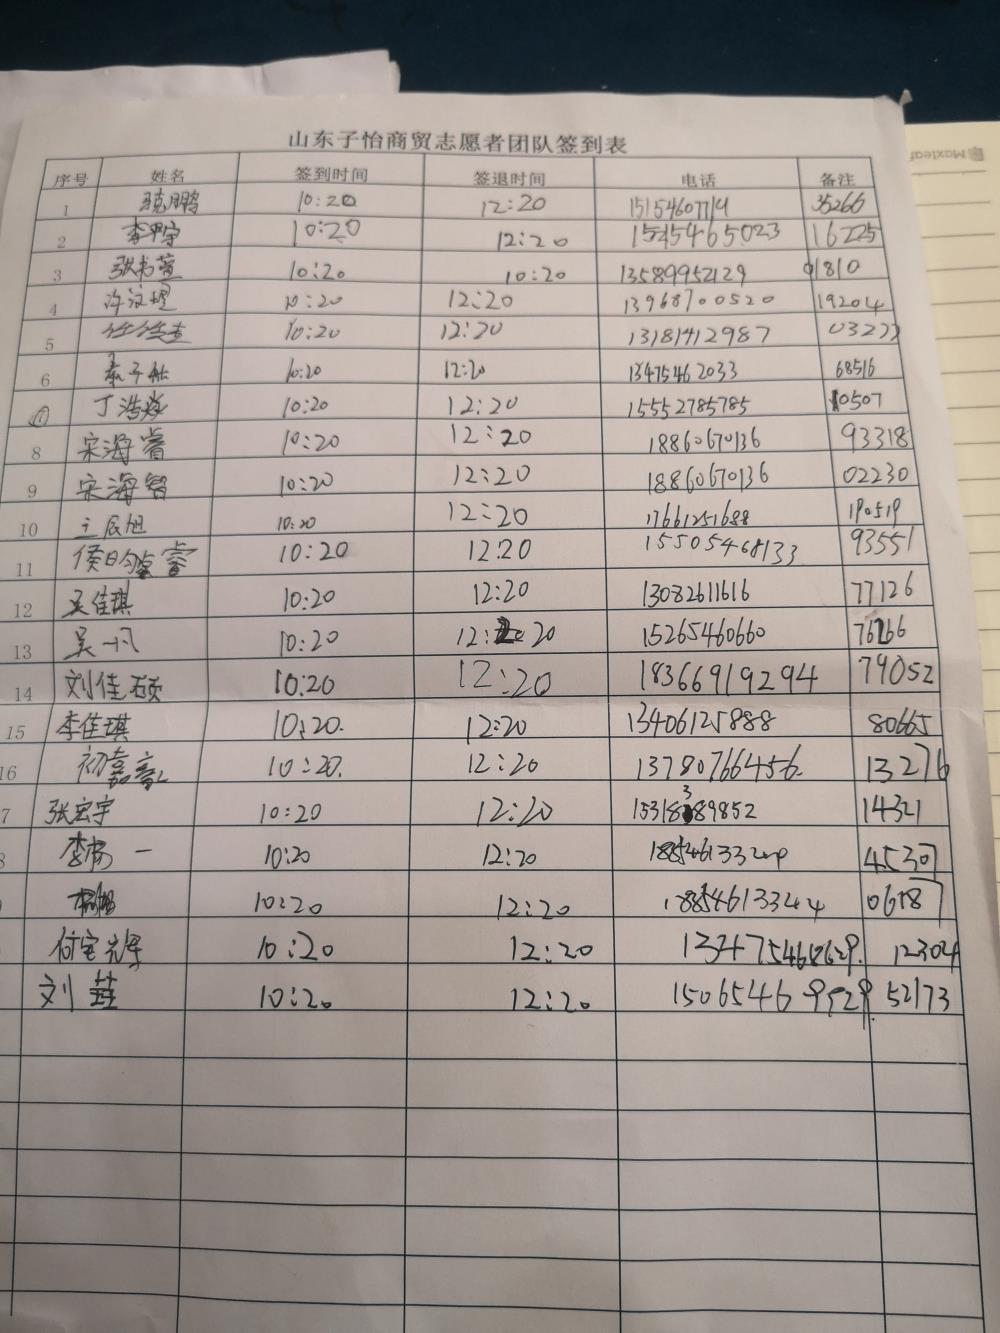 山东子怡商贸志愿者团队签到表
序号 姓名 签到时间 签退时间 电话 备注
1 骁鹏 10:20 12:20 15154607714 35266
2 10:20 12:20 15254465023 16225
3 张书萱 10:20 10:20 13589952129 01810
4 10:20 12:20 13968700520 19204
5 10:20 12:20 13181412987
6 10:20 12:20 13475462033 68516
丁浩淼 10:20 12:20 15552785785 10507
8 宋海睿 10:20 12:20 18860670136 93318
9 宋海智 10:20 12:20 18860670136 02230
10 王辰旭 10:20 12:20 17661251688 190519
11 10:20 12:20 15505468133 93551
12 吴佳琪 10:20 12:20 13082611616 77126
13 吴一凡 10:20 12:20 15265460660
14 刘佳硕 10:20 12:20 18366919294 79052
15 李佳琪 10:20. 12:20 13406125888 80665
16 初嘉 10:20. 12:20 13780766456. 13276
7 张宏宇 10:20 12:20 14321
8 10:20 12:20
10:20 12:20 18854613344
付宝光 10:20 12:20 12304
刘 10:20 12:20 52173
Maxleaf